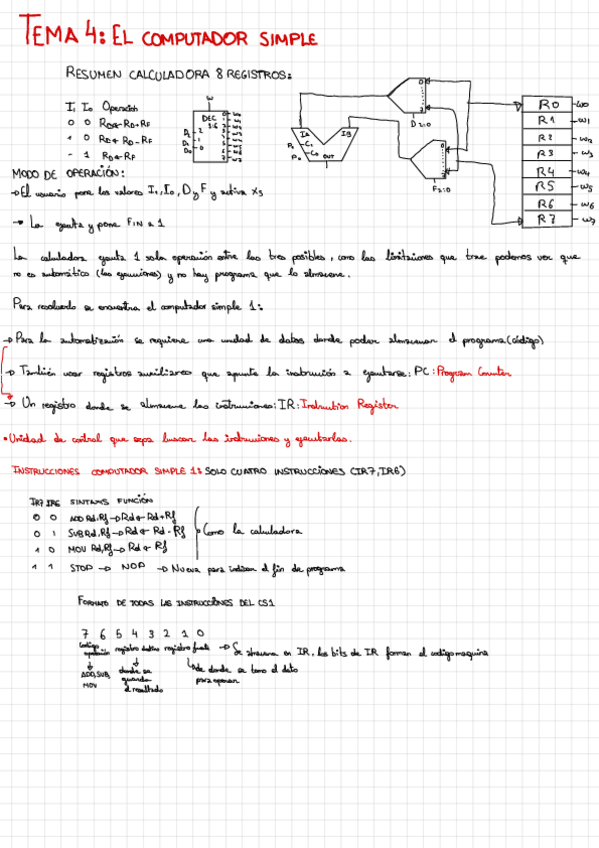 TEMA 4: EL COMPUTADOR SIMPLE
RESUMEN CALCULADORA 8 REGISTROS:
I₁ I₀ Operación
0 0 RD←RD+RF
1 0 RD←RD-RF
- 1 RD←RF
W
DEC
3:8
D₂ 2
D₁ 1
D₀ 0
IA IB
C₁
C₀ OUT
D2:0
F2:0
R0 W0
R1 W1
R2 W2
R3 W3
R4 W4
R5 W5
R6 W6
R7 W7
MODO DE OPERACIÓN:
→El usuario pone los valores I₁, I₀, D y F y activa XS
→ La ejecuta y pone FIN a 1
La calculadora ejecuta 1 sola operación entre las tres posibles, como las limitaciones que trae podemos ver que
no es automático (las ejecuciones) y no hay programa que lo almacene.
Para resolverlo se encuentra el computador simple 1:
→Para la automatización se requiere una unidad de datos donde poder almacenar el programa (código)
→ También usar registros auxiliares que apunte la instrucción a ejecutarse: PC: Program Counter
→ Un registro donde se almacene las instrucciones: IR: Instruction Register
•Unidad de control que sepa buscar las instrucciones y ejecutarlas.
INSTRUCCIONES COMPUTADOR SIMPLE 1: SOLO CUATRO INSTRUCCIONES (IR7, IR6)
IR7 IR6 SINTAXIS FUNCIÓN
0 0 ADD Rd,Rf→Rd←Rd+Rf
0 1 SUB Rd,Rf→Rd←Rd-Rf
1 0 MOV Rd,Rf→Rd←Rf
Como la calculadora
1 1 STOP → NOP → Nueva para indicar el fin de programa
FORMATO DE TODAS LAS INSTRUCCIONES DEL CS1
7 6 5 4 3 2 1 0
Código operación registro destino registro fuente → Se almacena en IR, los bits de IR forman el codigo maquina
ADD,SUB, MOV
donde se guarda el resultado
de donde se toma el dato para operar